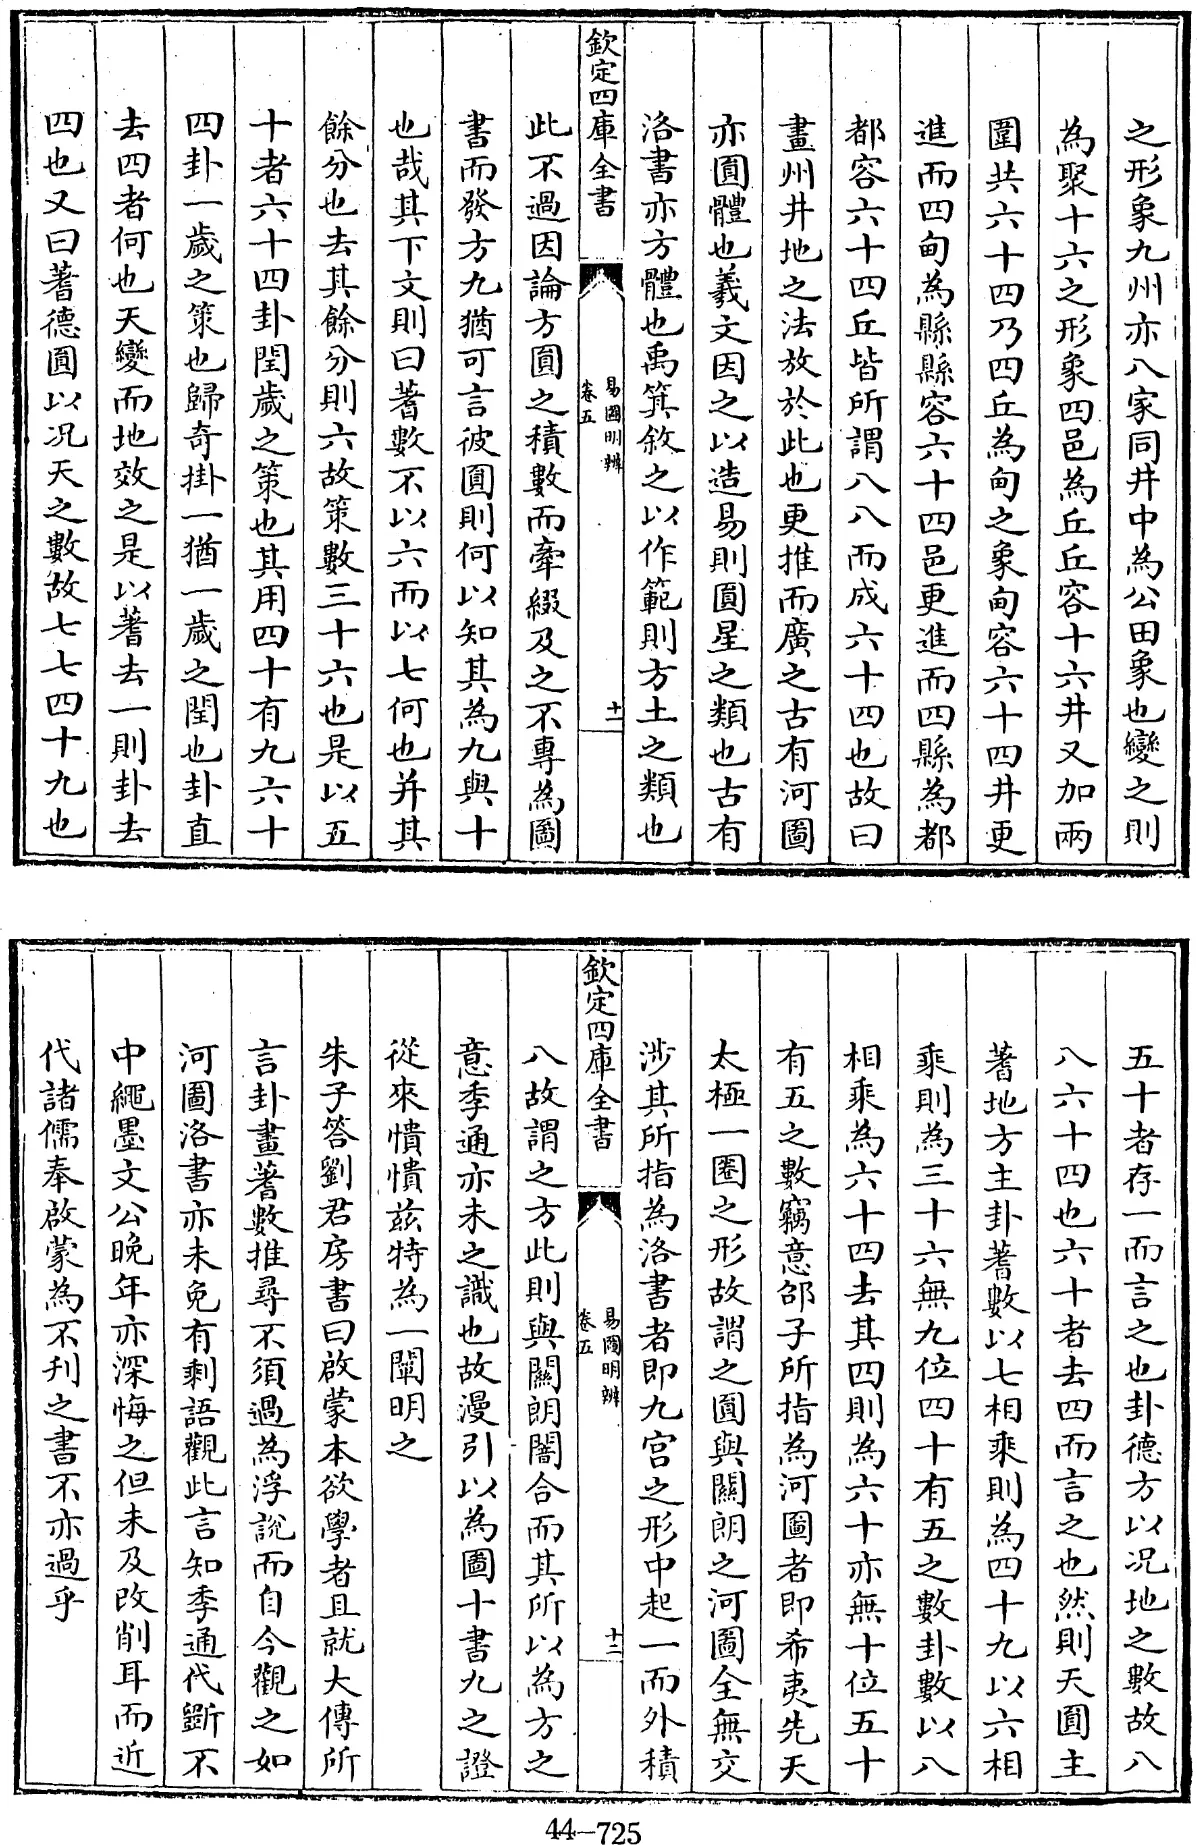 之形象九州亦八家同井中為公田象也變之則
為聚十六之形象四邑為丘丘容十六井又加兩
圍共六十四乃四丘為甸之象甸容六十四井更
進而四甸為縣縣容六十四邑更進而四縣為都
都容六十四丘皆所謂八八而成六十四也故曰
畫州井地之法放於此也更推而廣之古有河圖
亦圓體也羲文因之以造易則圓星之類也古有
洛書亦方體也禹箕敘之以作範則方土之類也
欽定四庫全書
易圖明辨
卷五
十一
此不過因論方圓之積數而牽綴及之不專為圖
書而發方九猶可言彼圓則何以知其為九與十
也哉其下文則曰蓍數不以六而以七何也并其
餘分也去其餘分則六故策數三十六也是以五
十者六十四卦閏歲之策也其用四十有九六十
四卦一歲之策也歸奇掛一猶一歲之閏也卦直
去四者何也天變而地效之是以蓍去一則卦去
四也又曰蓍德圓以况天之數故七七四十九也
五十者存一而言之也卦德方以况地之數故八
八六十四也六十者去四而言之也然則天圓主
蓍地方主卦蓍數以七相乘則為四十九以六相
乘則為三十六無九位四十有五之數卦數以八
相乘為六十四去其四則為六十亦無十位五十
有五之數竊意邵子所指為河圖者即希夷先天
太極一圈之形故謂之圓與關朗之河圖全無交
涉其所指為洛書者即九宫之形中起一而外積
欽定四庫全書
易圖明辨
卷五
十二
八故謂之方此則與關朗闇合而其所以為方之
意季通亦未之識也故漫引以為圖十書九之證
從來憒憒茲特為一闡明之
朱子答劉君房書曰啟蒙本欲學者且就大傳所
言卦畫蓍數推尋不須過為浮說而自今觀之如
河圖洛書亦未免有剩語觀此言知季通代斲不
中繩墨文公晚年亦深悔之但未及改削耳而近
代諸儒奉啟蒙為不刋之書不亦過乎
44-725